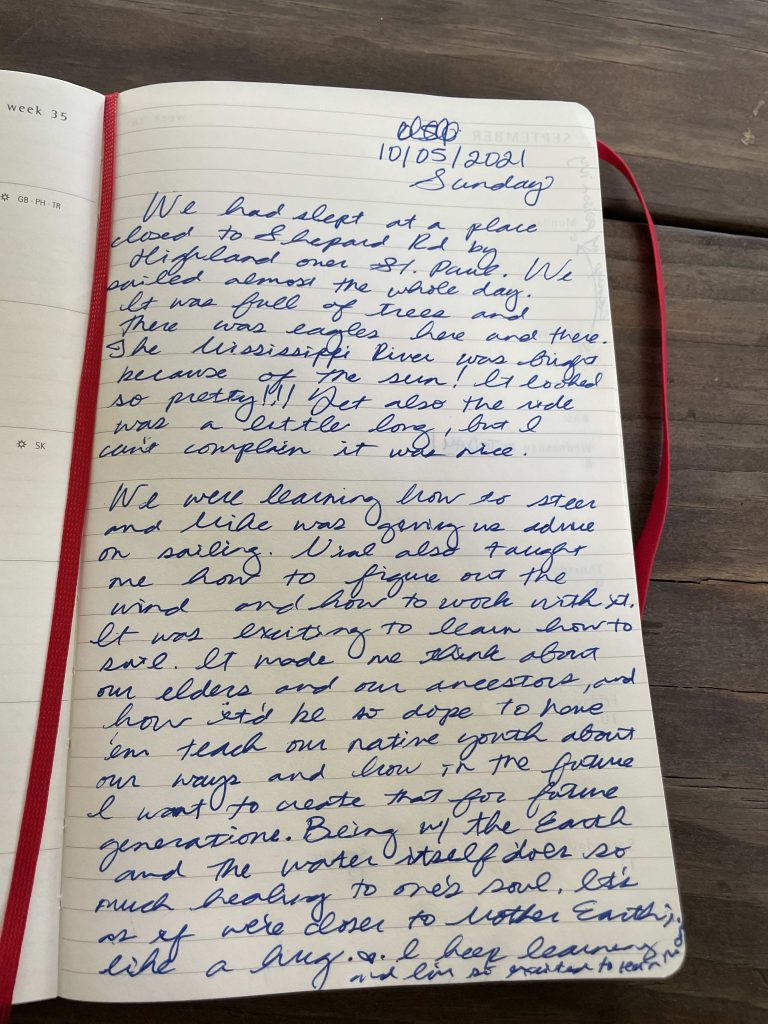 week 35
GB · PH · TR
SK
SEPTEMBER
10/05/2021
Sunday
We had slept at a place
closed to Shepard Rd by
Highland over St. Paul. We
sailed almost the whole day.
It was full of trees and
there was eagles here and there.
The Mississippi River was bright
because of the sun! It looked
so pretty!!! Yet also the ride
was a little long, but I
can't complain it was nice.
We were learning how to steer
and Mike was giving us advice
on sailing. also taught
me how to figure out the
wind and how to work with it.
It was exciting to learn how to
sail. It made me think about
our elders and our ancestors, and
how it'd be so dope to have
'em teach our native youth about
our ways and how in the future
I want to create that for future
generations. Being w/ the Earth
and the water itself does so
much healing to one's soul. It's
as if we're closer to Mother Earth;
like a hug. I keep learning
and I'm so excited to learn more